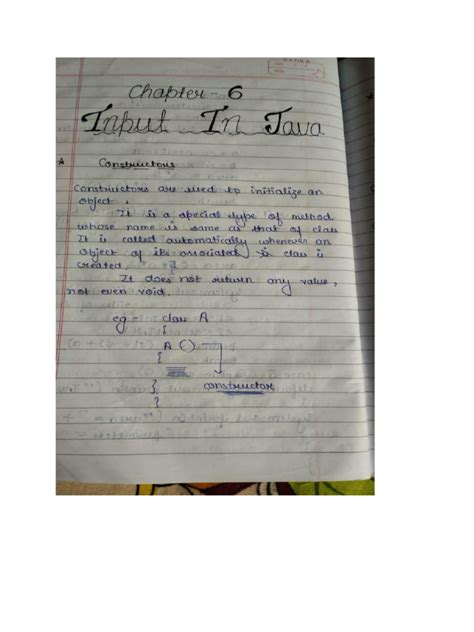 Chapter - 6
Input In Java
* Constructors
Constructors are used to initialize an
object.
It is a special type of method
whose name is same as that of class
It is called automatically whenever an
object of its associated class is
created.
It does not return any value,
not even void.
eg - class A
{
A ( )
{
}
constructor
}